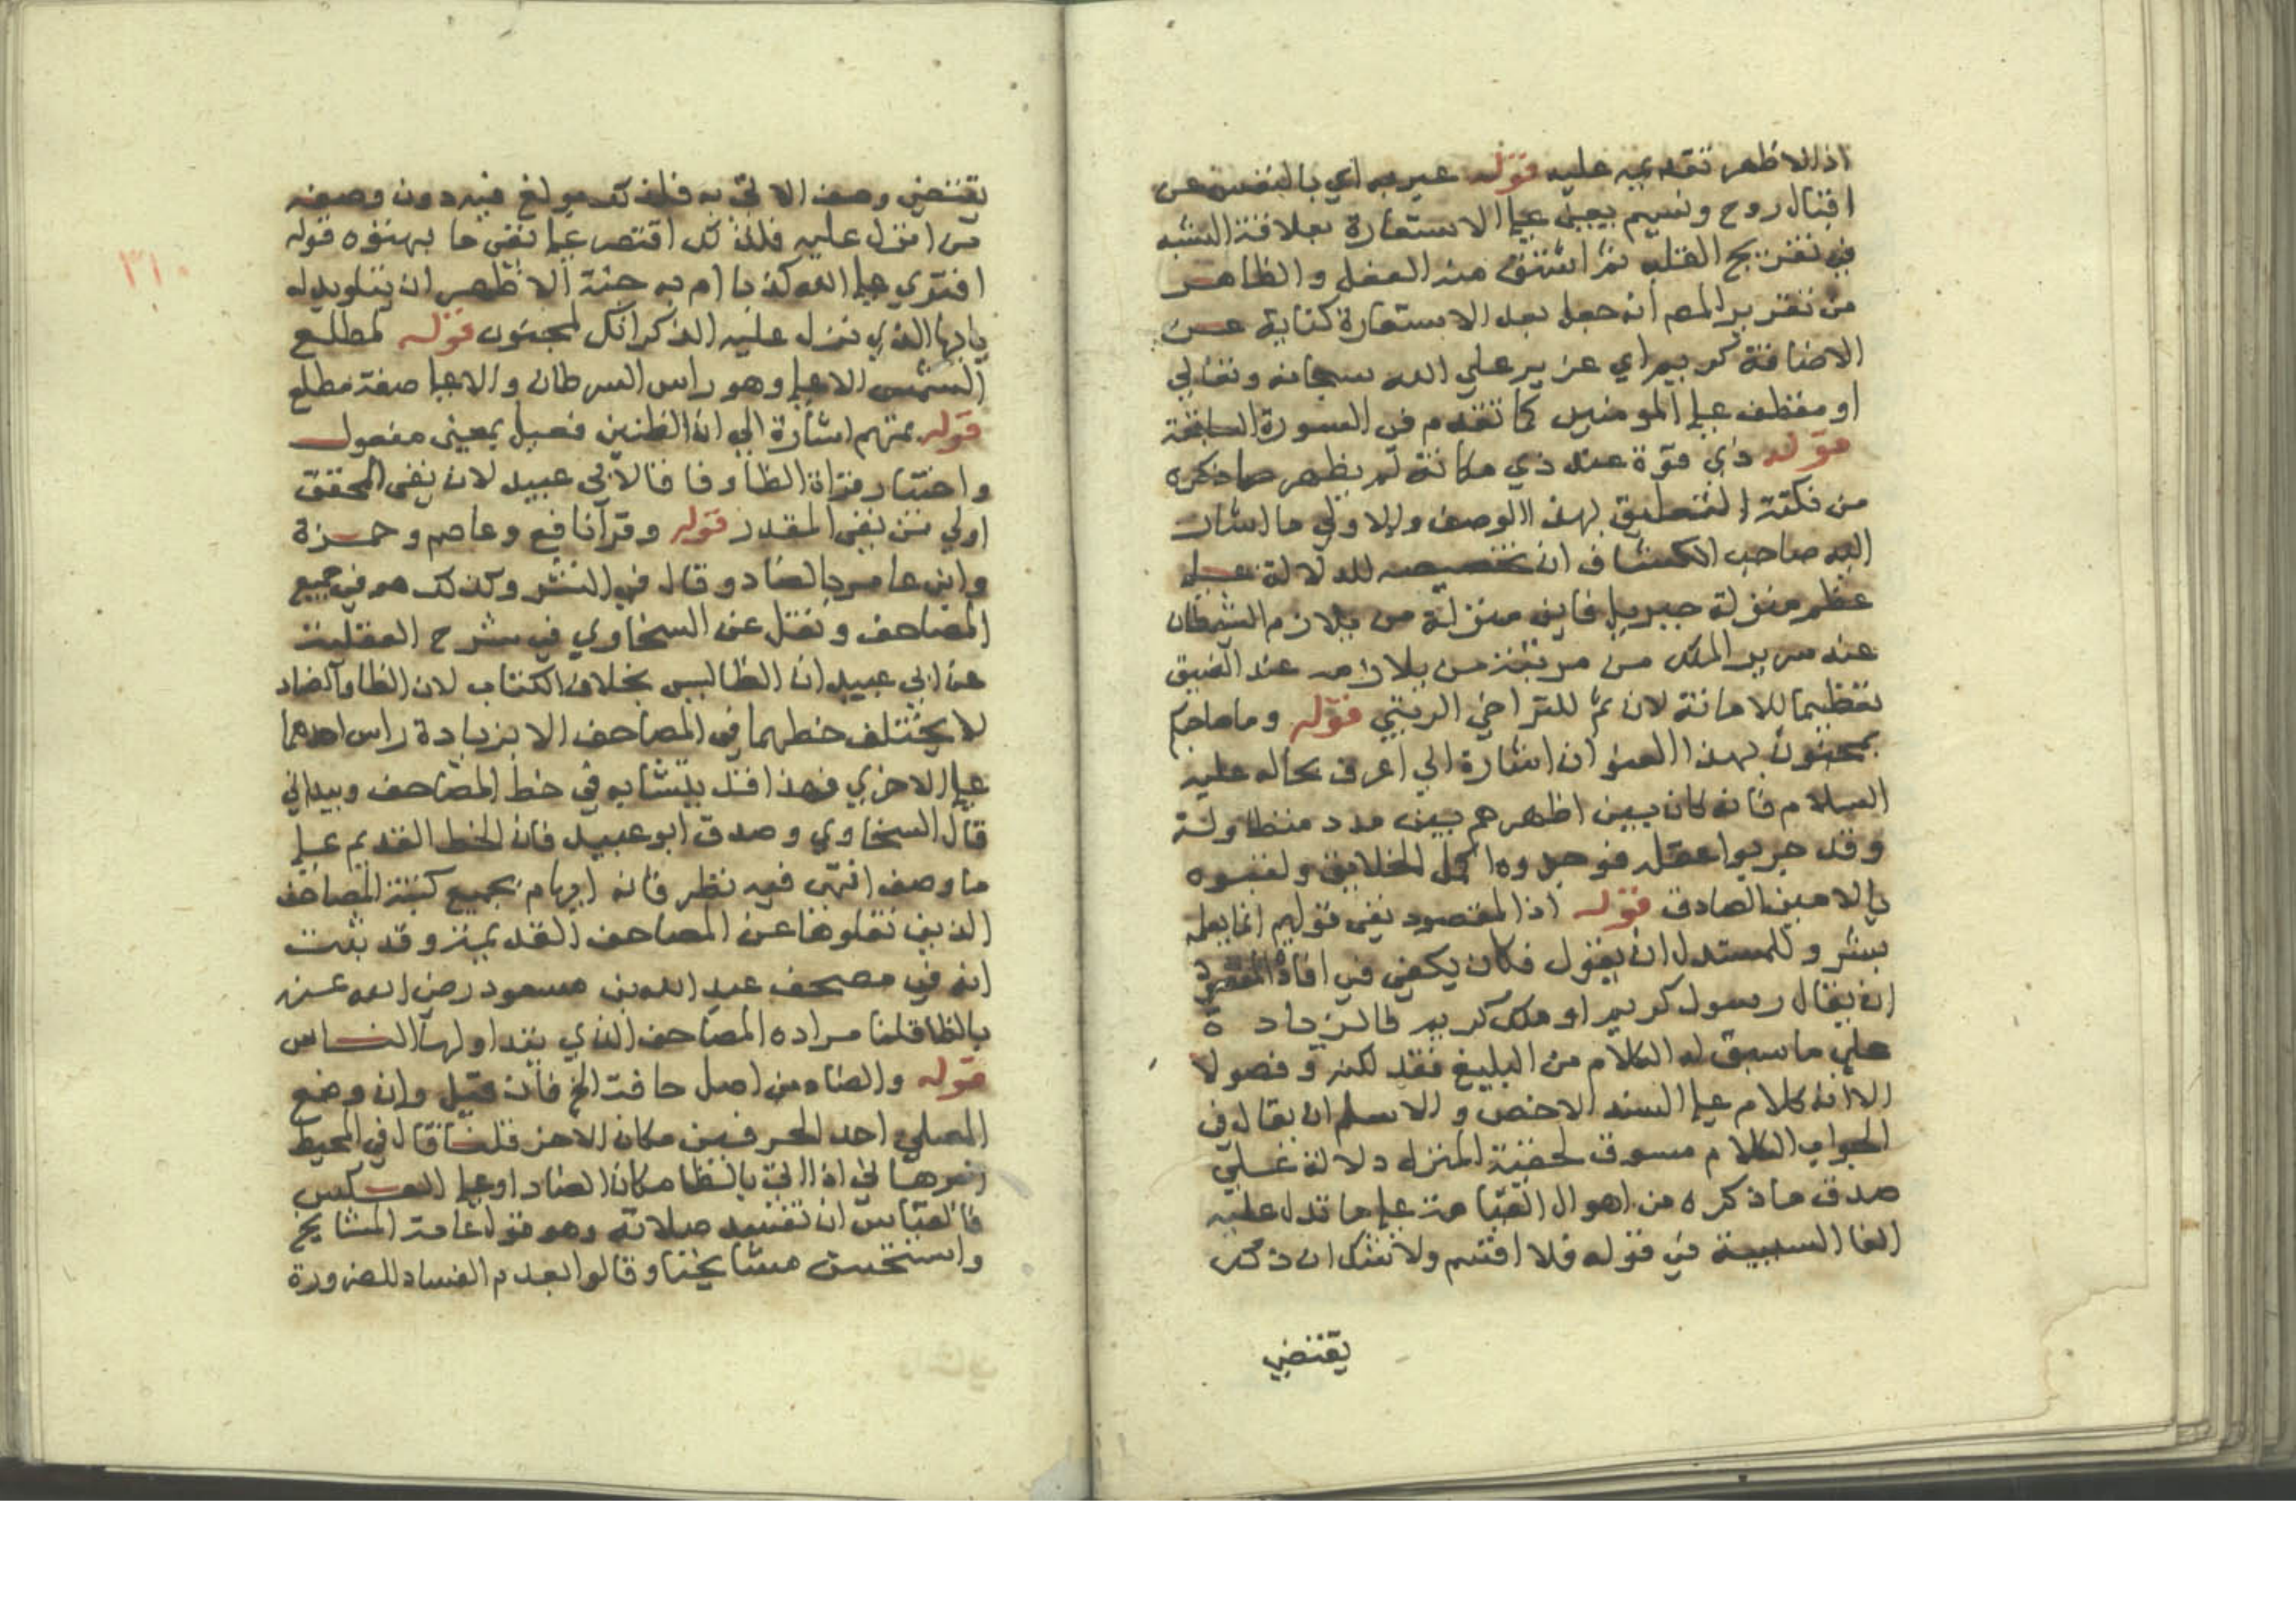 اذ الاظهر تقديمه عليه قوله عبر به اي بالتنفس عن
اقبال روح ونسيم يعني على الاستعارة بعلاقة التشبه
في تفريج القلب ثم اشتق منه الفعل والظاهر
من تقرير المص انه جعل بعد الاستعارة كناية عن
الاضافة كريم اي عزيز على الله سبحانه وتعالى
او متعطف على المومنين كما تقدم في السورة السابقة
قوله ذي قوة عند ذي مكانة لم يظهر مما ذكره
من نكتة التعليق بهذا الوصف والاولى ما اشار
اليه صاحب الكشاف ان تخصيصه للدلالة على
عظم منزلة جبريل فاين منزلة من يلازم السلطان
عند سرير الملك من مرتبة من يلازمه عند الضيق
تعظيما للامانة لان ثم للتراخي الرتبي قوله وما صاحبكم
بمجنون بهذا العنوان اشارة الي اعرف بحاله عليه
السلام فانه كان بين اظهرهم بين مدد متطاولة
وقد جربوا عقله فوجدوه اكمل الخلايق ولقبوه
بالامين الصادق قوله اذ المقصود نفي قولهم انما يعلمه
بشر وللمستدل ان يقول فكان يكفي في افادة المقصود
ان يقال رسول كريم او ملك كريم فالزيادة
على ما سيق له الكلام من البليغ فقد لكنه وفصولا
الا انه كلام على السند الاخص والاسلم ان يقال في
الجواب الكلام مسوق لحقية المنزل دلالة على
صدق ما ذكره من اهوال القيامة على ما تدل عليه
الفا السببية في قوله فلا اقسم ولا شك ان ذكر
يقتضي
٣١٠
يقتضي وصف الاتي به فلذلك بولغ فيه دون وصف
من انزل عليه فلذلك اقتصر على نفي ما بهتوه قوله
افترى على الله كذبا ام به جنة الاظهر ان يتلو بدله
يا ايها الذي نزل عليه الذكر انك لمجنون قوله لمطلع
الشمس الاعلى وهو راس السرطان والاعلى صفة مطلع
قوله بمتهم اشارة الي ان الظنين فعيل بمعنى مفعول
واختار قراة الظا وفاقا لابي عبيد لان نفي المحقق
اولي من نفي المقدر قوله وقرا نافع وعاصم وحمزة
وابن عامر بالضاد وقال في النشر وكذلك هو في جميع
المصاحف ونقل عن السخاوي في شرح العقيلة
عن ابي عبيد ان الظا ليس بخلاف الكتاب لان الظا والضاد
لا يختلف خطهما في المصاحف الا بزيادة راس احدهما
على الاخري فهذا قد يتشابه في خط المصاحف ويتدانى
قال السخاوي وصدق ابو عبيد فان الخط القديم على
ما وصف انتهى فيه نظر فانه ابهام بجميع كتبة المصاحف
الذين نقلوها عن المصاحف القديمة وقد ثبت
انه في مصحف عبد الله بن مسعود رضي الله عنه
بالظا قلنا مراده المصاحف الذي يتداولها الناس
قوله والضاد من اصل حافة الخ فان قيل وان وضع
المصلي احد الحرفين مكان الاخر قلنا قال في المحيط
البرهاني اذا اتى بالظا مكان الضاد او على العكس
فالقياس ان تفسد صلاته وهو قول عامة المشايخ
واستحسن مشايخنا وقالوا بعدم الفساد للضرورة